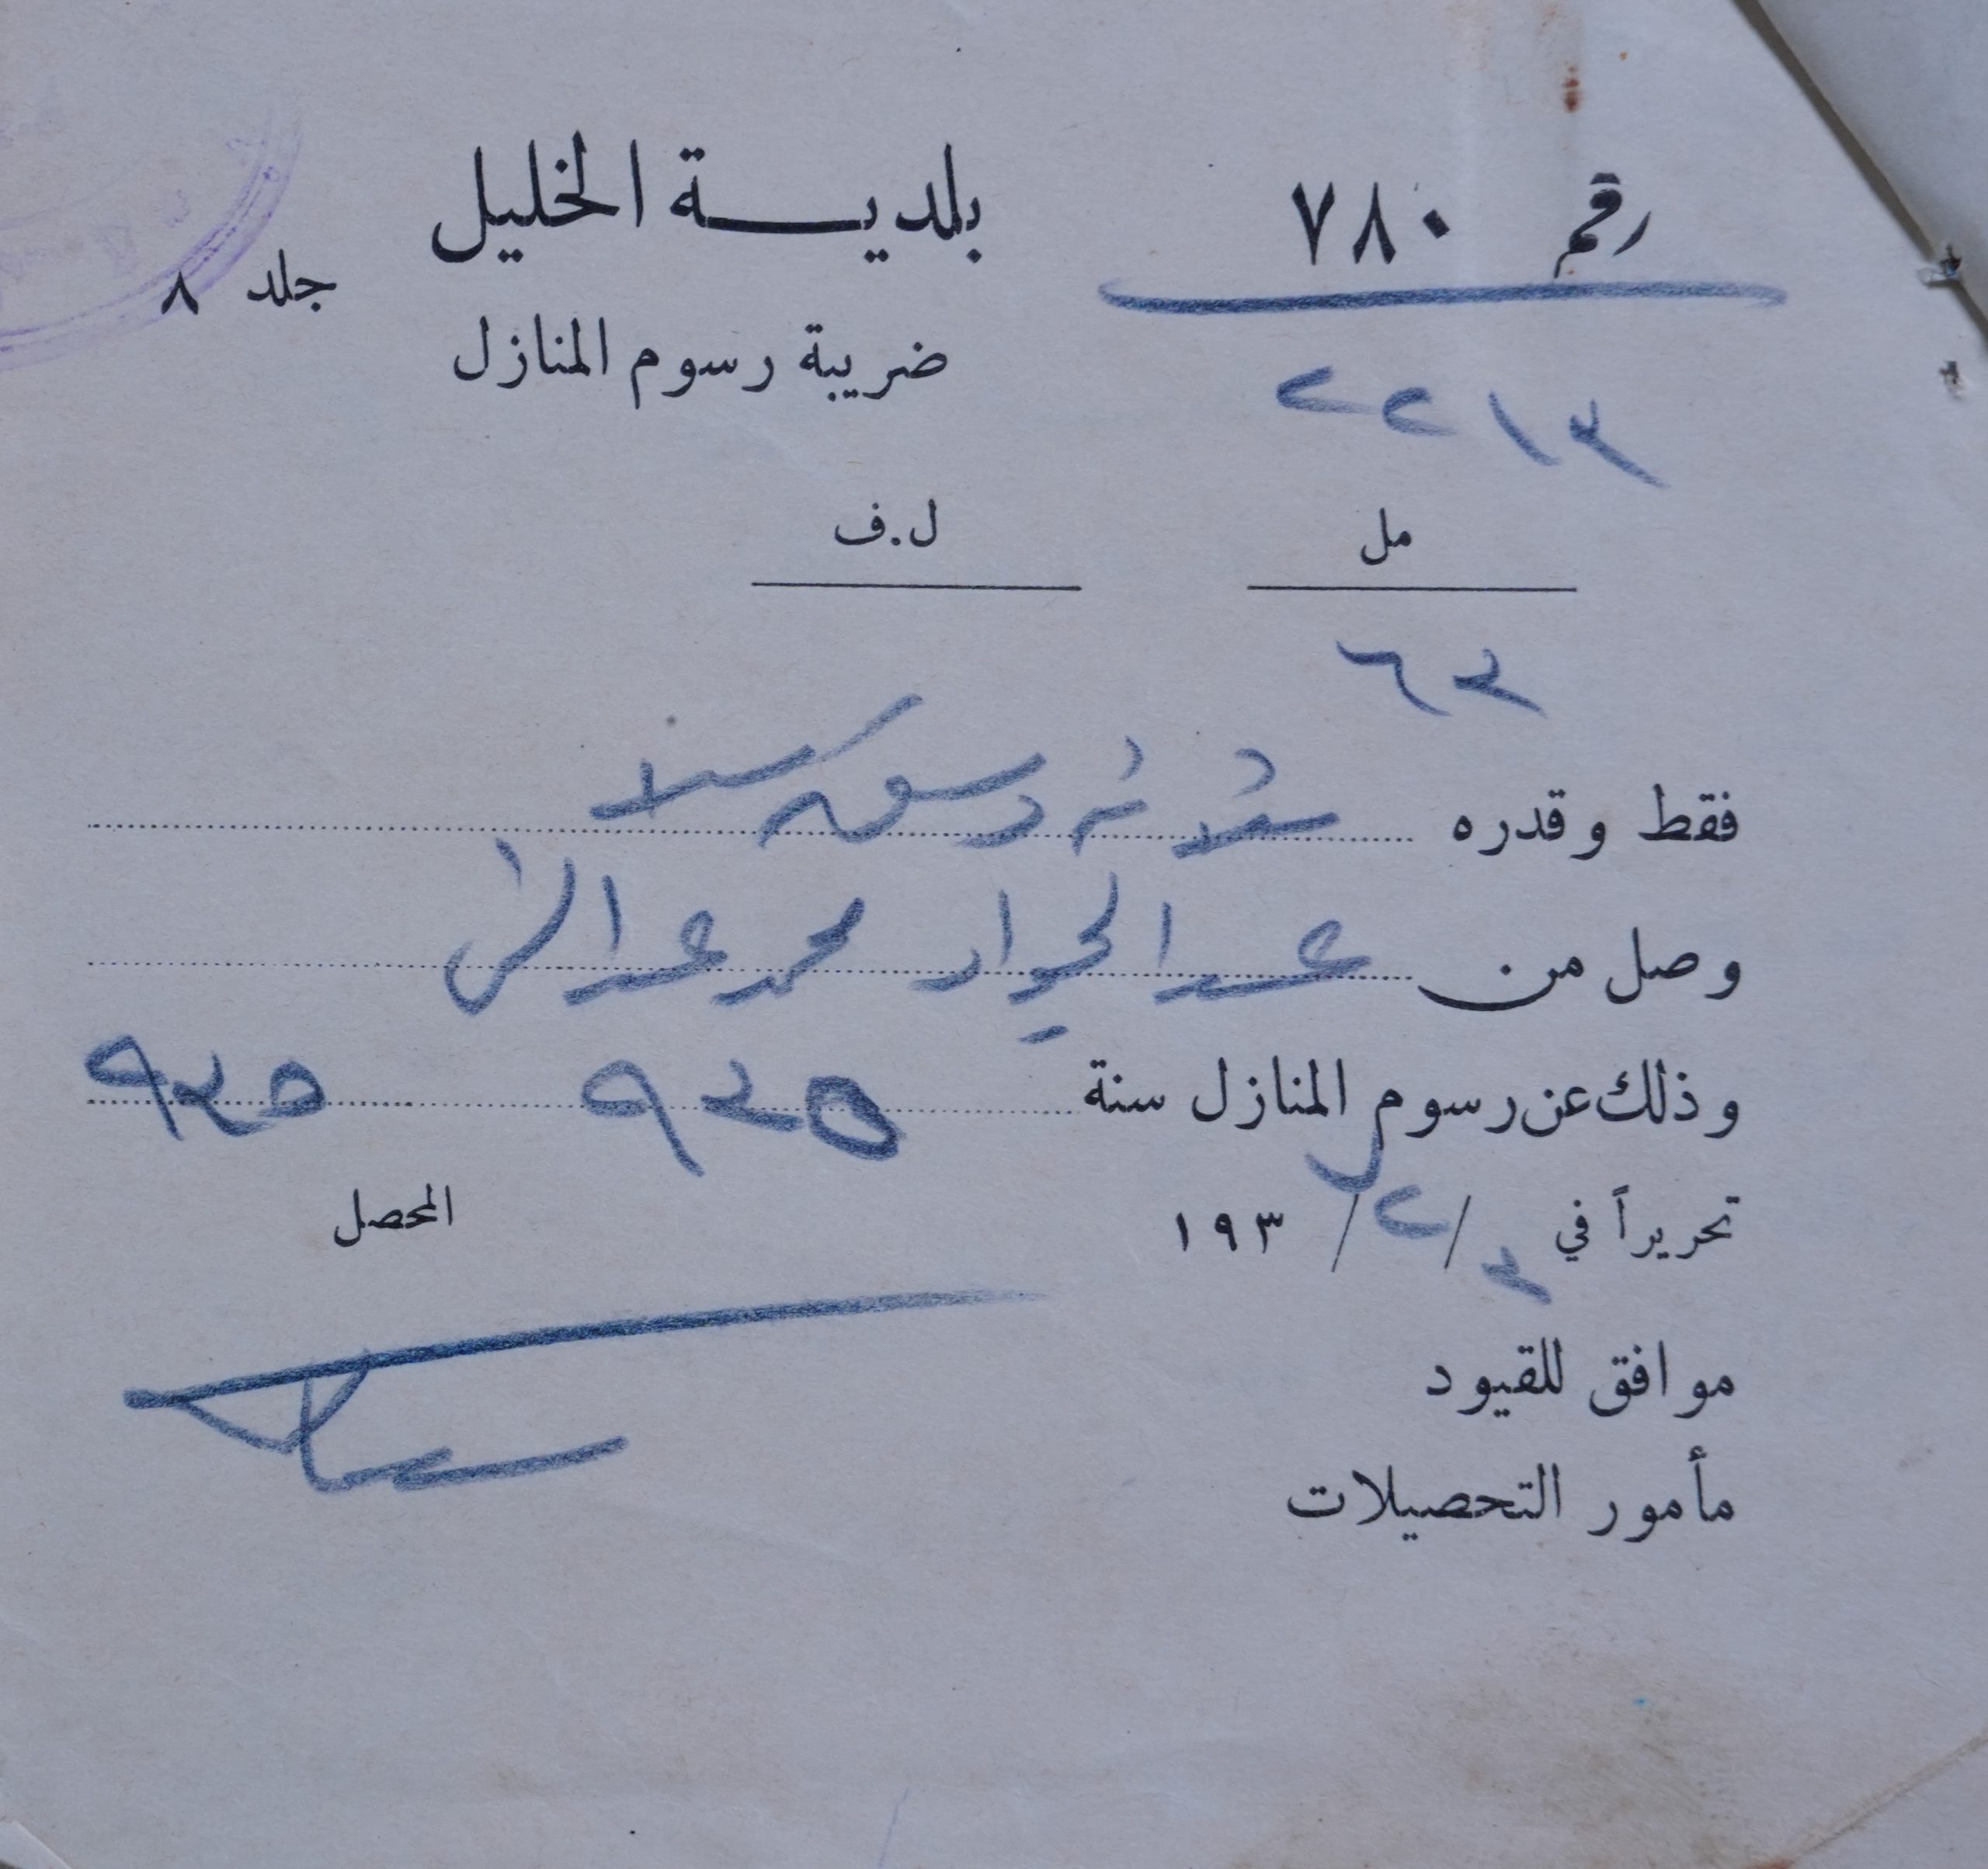 رقم ٧٨٠
بلديـــة الخليل
جلد ٨
ضريبة رسوم المنازل
٢٢١٣
مل ل.ف
٦٣
فقط وقدره
وصل من عبد الجواد محمد
وذلك عن رسوم المنازل سنة ٩٣٥ ٩٣٥
تحريراً في ٣/٢/١٩٣
المحصل
موافق للقيود
مأمور التحصيلات